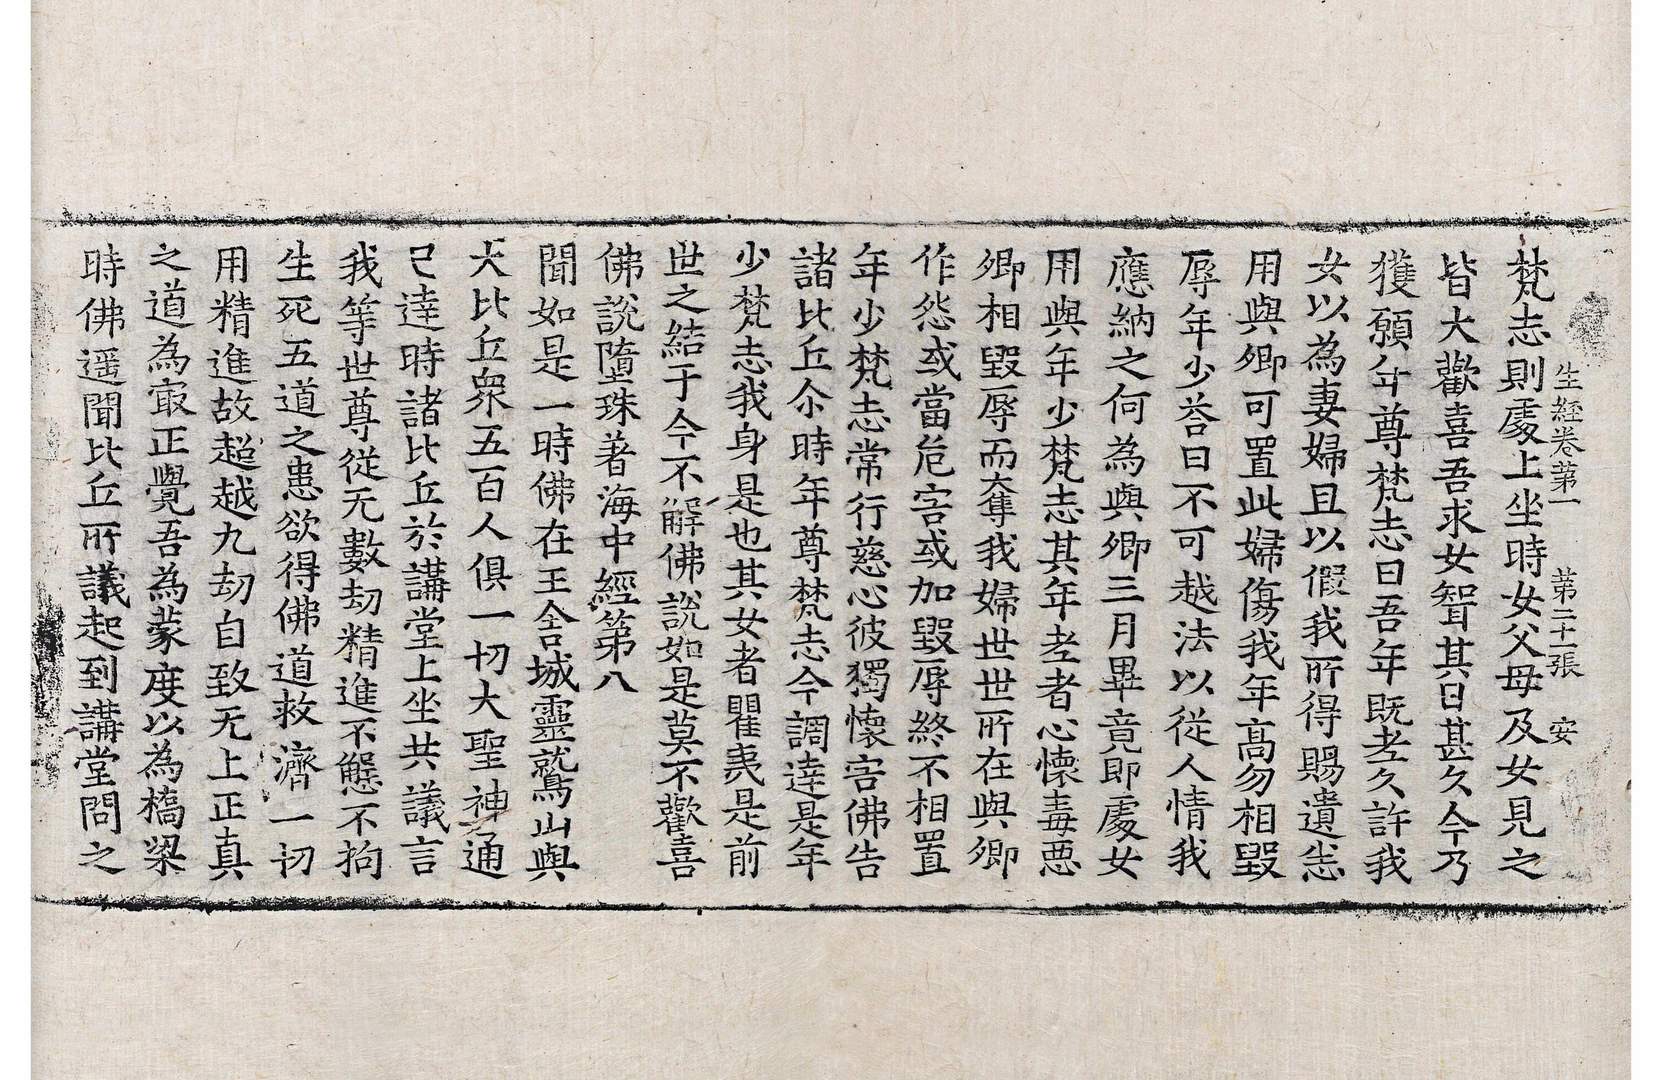 生經卷第一　第二十一張　安
梵志則處上坐時女父母及女見之
皆大歡喜吾求女聟其日甚久今乃
獲願年尊梵志曰吾年既老久許我
女以為妻婦且以假我所得賜遺悉
用與卿可置此婦傷我年高勿相毀
辱年少荅曰不可越法以從人情我
應納之何為與卿三月畢竟即處女
用與年少梵志其年老者心懷毒惡
卿相毀辱而奪我婦世世所在與卿
作怨或當危害或加毀辱終不相置
年少梵志常行慈心彼獨懷害佛告
諸比丘尒時年尊梵志今調達是年
少梵志我身是也其女者瞿夷是前
世之結于今不解佛說如是莫不歡喜
佛說墮珠著海中經第八
聞如是一時佛在王舍城靈鷲山與
大比丘衆五百人俱一切大聖神通
已達時諸比丘於講堂上坐共議言
我等世尊從无數劫精進不懈不拘
生死五道之患欲得佛道救濟一切
用精進故超越九劫自致无上正真
之道為寂正覺吾為蒙度以為橋梁
時佛遥聞比丘所議起到講堂問之